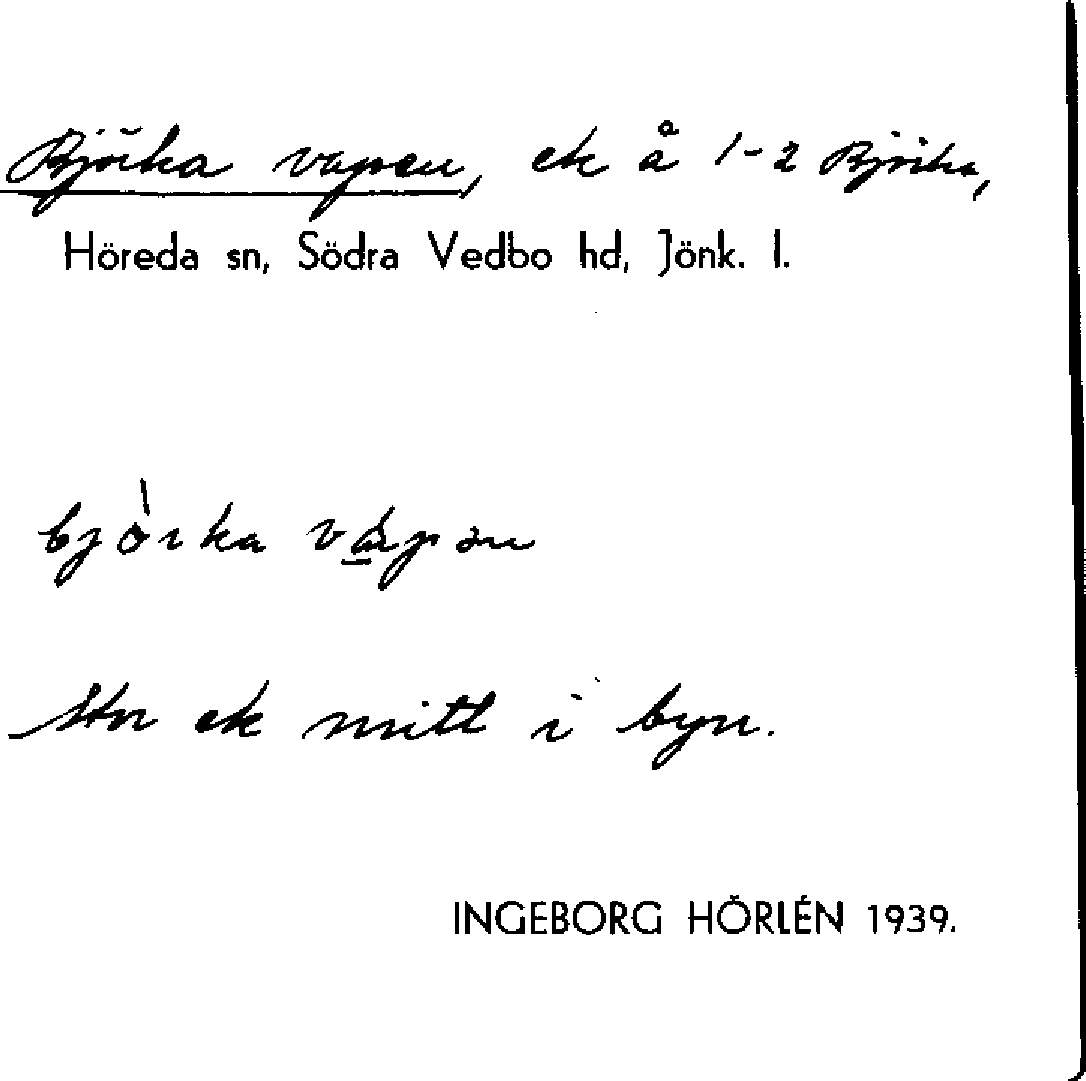 Björka vapen, ek å 1-2 Björka,
Höreda sn, Södra Vedbo hd, Jönk. l.
björka vápən
Stor ek mitt i byn.
INGEBORG HÖRLÉN 1939.